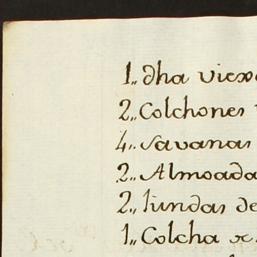 1,, dha viexa
2,, Colchones
4,, savanas
2,, Almoada
2,, fundas de
1,, Colcha